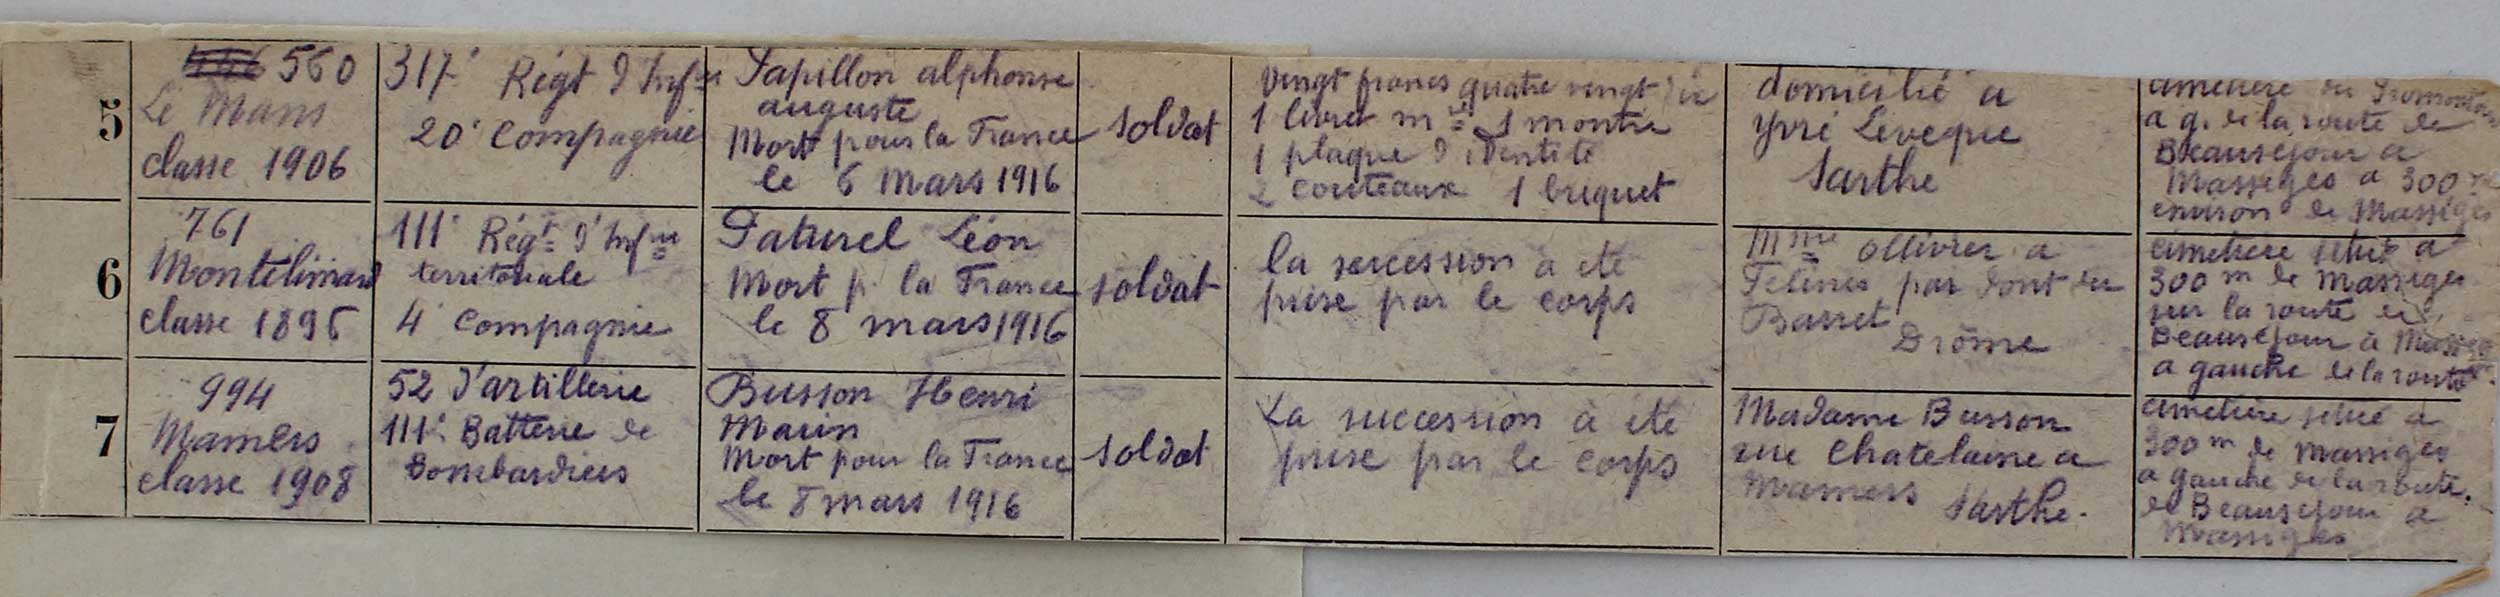 5
560
Le Mans
classe 1906
317e Régt d'Infie
20e Compagnie
Papillon alphonse
auguste
Mort pour la France
le 6 mars 1916
soldat
Vingt francs quatre vingt dix
1 livret mre 1 montre
1 plaque d'identité
2 couteaux 1 briquet
domicilié a
Yvré Leveque
Sarthe
cimetiere du Promontoire
a g. de la route de
Beausejour a
Massiges a 300 m
environ de Massiges
6
761
Montelimard
classe 1896
111e Régt d'Infie
territoriale
4e Compagnie
Paturel Léon
Mort p. la France
le 8 mars 1916
soldat
la sucession a été
prise par le corps
Mme Ollivier a
Felines par Dont du
Basset
Drôme
cimetiere situé a
300 m de Massiges
sur la route de
Beauséjour à Massiges
a gauche de la route
7
994
Mamers
classe 1908
52 d'artillerie
111e Batterie de
Bombardiers
Busson Henri
Marin
Mort pour la France
le 8 mars 1916
soldat
La succession a été
prise par le corps
Madame Busson
rue Chatelaine a
Mamers Sarthe.
cimetière situé a
300 m de Massiges
a gauche de la route.
de Beausejour a
Massiges